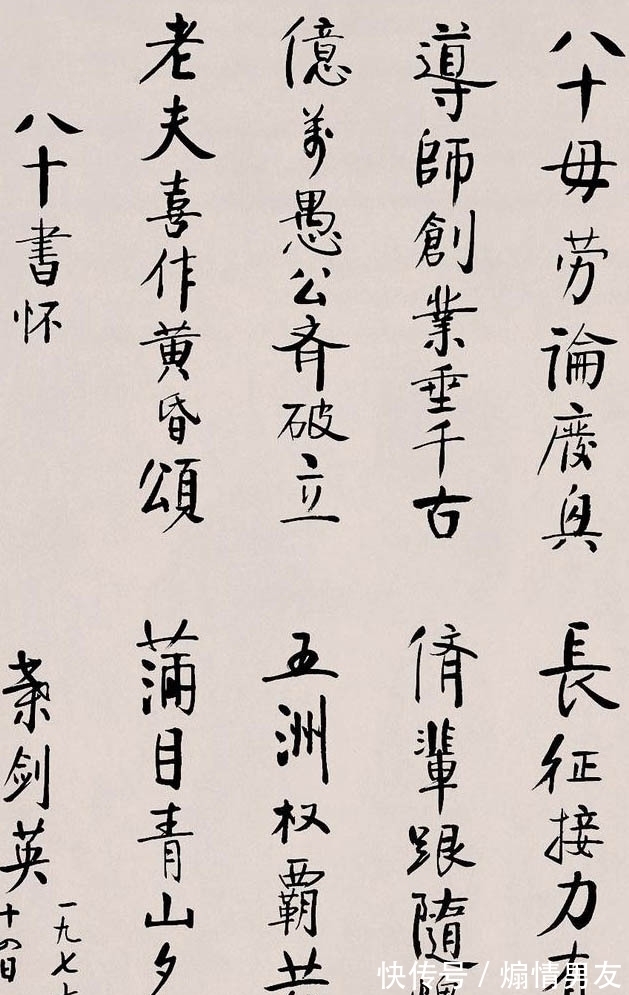 八十毋劳論廢興 長征接力
導師創業垂千古 儕輩跟隨
億萬愚公斉破立 五洲权霸
老夫喜作黄昏頌 滿目青山夕
八十書怀 葉剑英
一九七
十四日
快传号 / 煽情男友